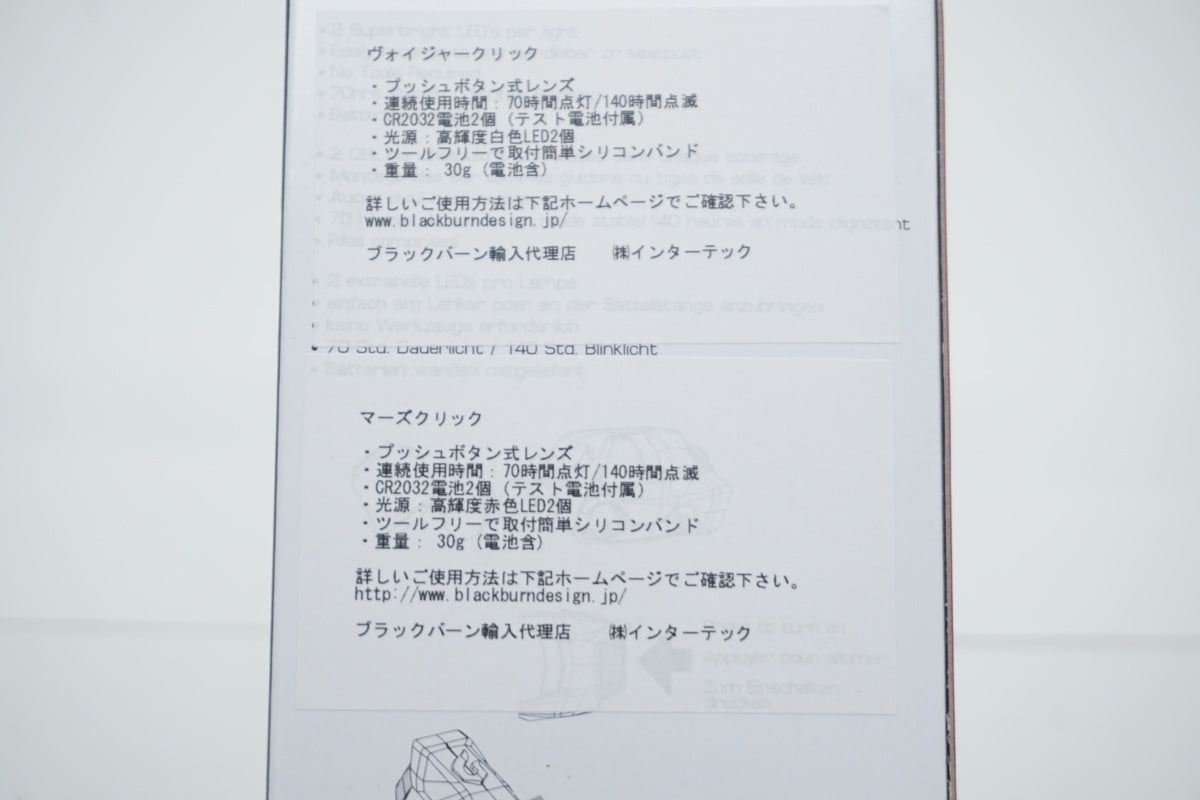 • 2 Superbright LED's per light
ヴォイジャークリック
・プッシュボタン式レンズ
・連続使用時間：70時間点灯/140時間点滅
・CR2032電池2個（テスト電池付属）
・光源：高輝度白色LED2個
・ツールフリーで取付簡単シリコンバンド
・重量： 30g（電池含）
詳しいご使用方法は下記ホームページでご確認下さい。
www.blackburndesign.jp/
ブラックバーン輸入代理店 ㈱インターテック
• 2 extrahelle LEDs pro Lampe
• einfach am Lenker oder an der Sattelstange anzubringen
• keine Werkzeuge erforderlich
• 70 Std. Dauerlicht / 140 Std. Blinklicht
• Batterien werden mitgeliefert
マーズクリック
・プッシュボタン式レンズ
・連続使用時間：70時間点灯/140時間点滅
・CR2032電池2個（テスト電池付属）
・光源：高輝度赤色LED2個
・ツールフリーで取付簡単シリコンバンド
・重量： 30g（電池含）
詳しいご使用方法は下記ホームページでご確認下さい。
http://www.blackburndesign.jp/
ブラックバーン輸入代理店 ㈱インターテック
to turn on
Appuyer pour allumer
Zum Einschalten
drücken